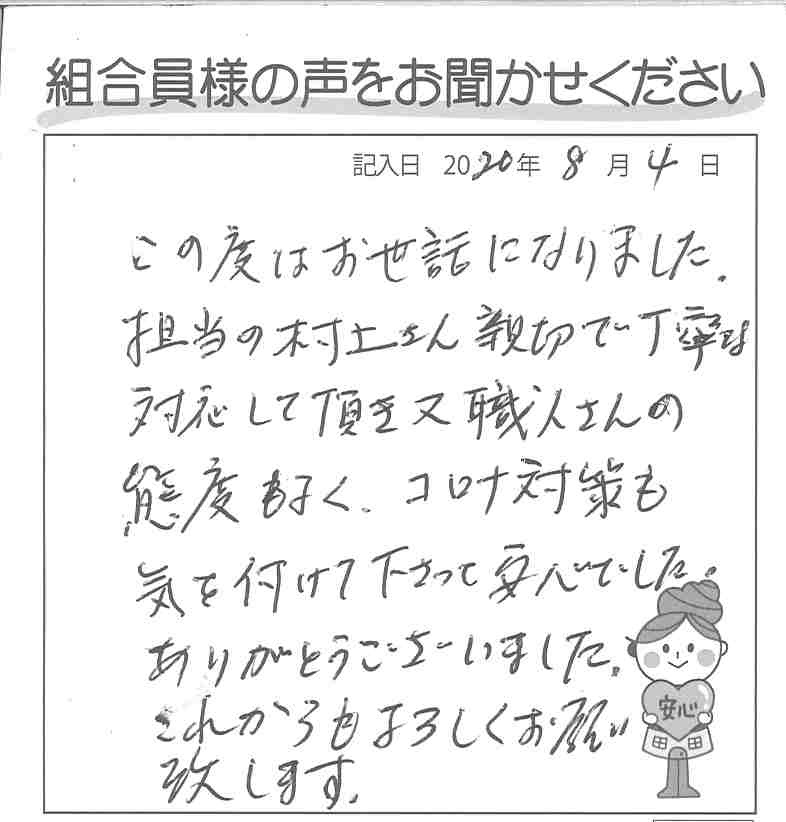 組合員様の声をお聞かせください
記入日 2020年 8月 4日
この度はお世話になりました.
担当の村上さん親切で丁寧な
対応して頂き又職人さんの
態度もよく、コロナ対策も
気を付けて下さって安心でした。
ありがとうございました.
これからもよろしくお願い
致します.
安心